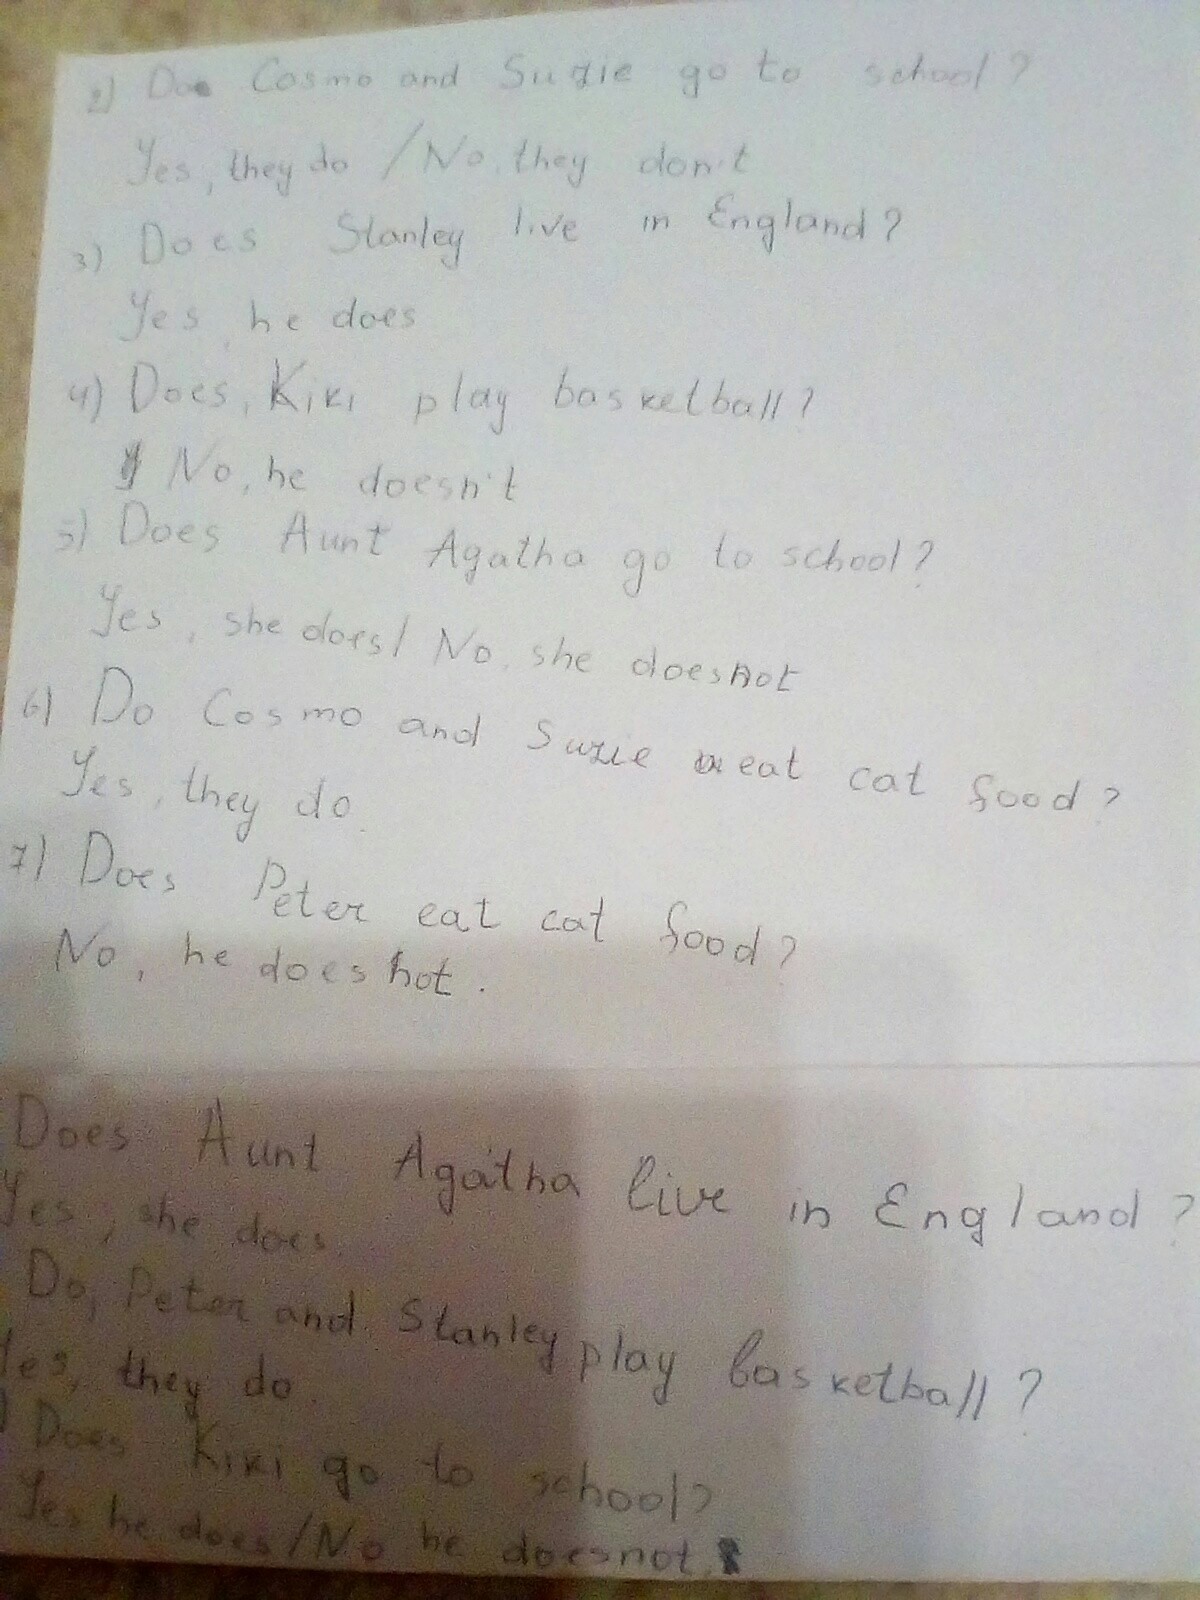 2) Do Cosmo and Suzie go to school?
Yes, they do / No, they don't
3) Does Stanley live in England?
Yes, he does
4) Does, Kiki play basketball?
No, he doesn't
5) Does Aunt Agatha go to school?
Yes, she does/ No, she doesnot
6) Do Cosmo and Suzie eat cat food?
Yes, they do.
7) Does Peter eat cat food?
No, he doesnot.
Does Aunt Agatha live in England?
Yes, she does.
Do, Peter and Stanley play basketball?
Yes, they do.
) Does Kiki go to school?
Yes he does/No he doesnot.